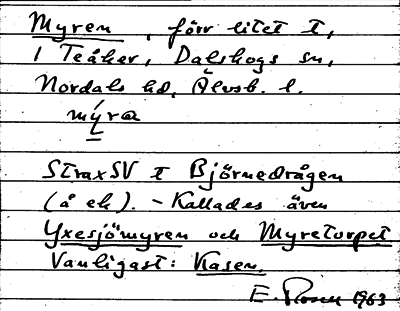 Myren, förr litet t,
1 Teåker, Dalskogs sn,
Nordals hd, Älvsb. l.
mýra
Strax SV t Björnedrågen
(å ek). - Kallades även
Yxesjömyren och Myretorpet
Vanligast: Kasen.
E. 1963